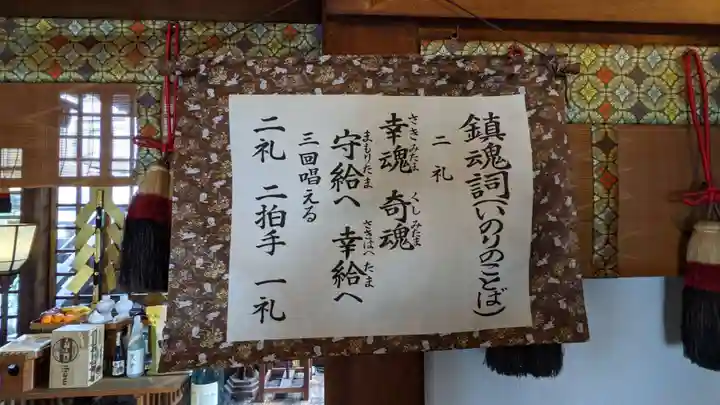 鎮魂詞(いのりのことば)
二礼
さきみたま くしみたま
幸魂 奇魂
まもりたま さきはへたま
守給へ 幸給へ
三回唱える
二礼 二拍手 一礼
meiji